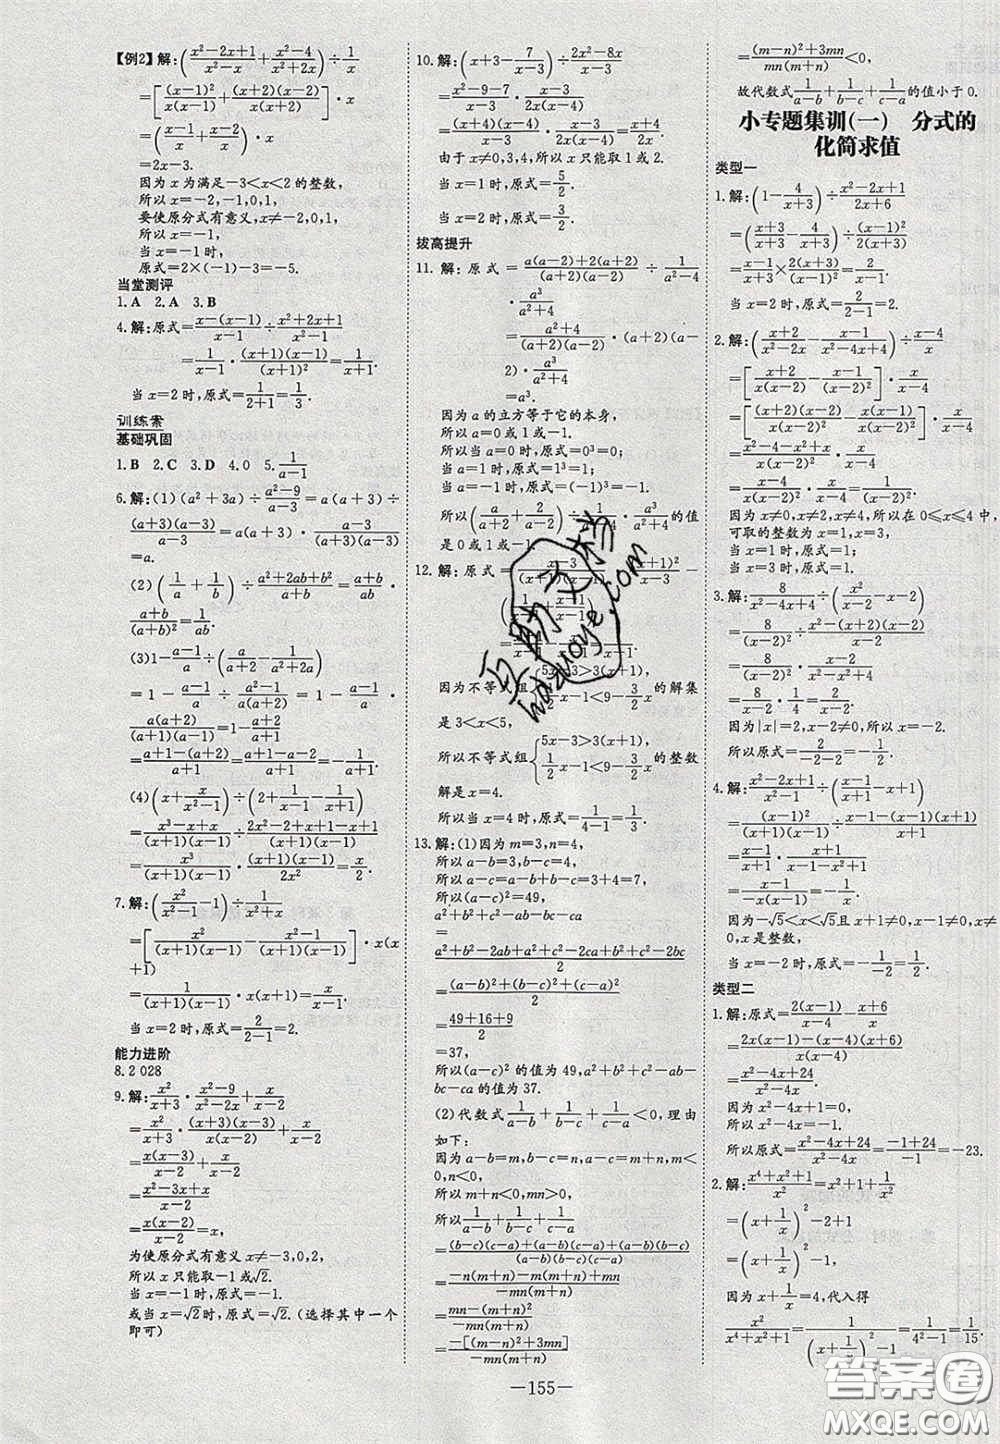 【例2】解:(\frac{x²-2x+1}{x²-x}+\frac{x²-4}{x²+2x})÷\frac{1}{x}
=[\frac{(x-1)²}{x(x-1)}+\frac{(x+2)(x-2)}{x(x+2)}]·x
=(\frac{x-1}{x}+\frac{x-2}{x})·x
=2x-3.
因为x为满足-3<x<2的整数,
所以x=-2,-1,0,1,
要使原分式有意义,x≠-2,0,1,
所以x=-1,
当x=-1时,
原式=2×(-1)-3=-5.
当堂测评
1.A 2.A 3.B
4.解:原式=\frac{x-(x-1)}{x-1}÷\frac{x²+2x+1}{x²-1}
=\frac{1}{x-1}·\frac{(x+1)(x-1)}{(x+1)²}=\frac{1}{x+1}.
当x=2时,原式=\frac{1}{2+1}=\frac{1}{3}.
训练案
基础巩固
1.B 2.C 3.D 4.0 5.\frac{1}{a-1}
6.解:(1)(a²+3a)÷\frac{a²-9}{a-3}=a(a+3)÷
\frac{(a+3)(a-3)}{a-3}=a(a+3)·\frac{a-3}{(a+3)(a-3)}
=a.
(2)(\frac{1}{a}+\frac{1}{b})÷\frac{a²+2ab+b²}{a+b}=\frac{a+b}{ab}·
\frac{a+b}{(a+b)²}=\frac{1}{ab}.
(3)1-\frac{a-1}{a}÷(\frac{a}{a+2}-\frac{1}{a²+2a})
=1-\frac{a-1}{a}÷\frac{a²-1}{a²+2a}=1-\frac{a-1}{a}·
\frac{a(a+2)}{(a+1)(a-1)}=1-\frac{a+2}{a+1}
=\frac{a+1}{a+1}-\frac{a+2}{a+1}=\frac{a+1-a-2}{a+1}=-\frac{1}{a+1}.
(4)(x+\frac{x}{x²-1})÷(2+\frac{1}{x-1}-\frac{1}{x+1})
=\frac{x³-x+x}{(x+1)(x-1)}÷\frac{2x²-2+x+1-x+1}{(x+1)(x-1)}
=\frac{x³}{(x+1)(x-1)}·\frac{(x+1)(x-1)}{2x²}=\frac{x}{2}.
7.解:(\frac{x²}{x²-1}-1)÷\frac{1}{x²+x}
=[\frac{x²}{(x+1)(x-1)}-\frac{x²-1}{(x+1)(x-1)}]·x(x
+1)
=\frac{1}{(x+1)(x-1)}·x(x+1)=\frac{x}{x-1}.
当x=2时,原式=\frac{2}{2-1}=2.
能力进阶
8.2 028
9.解:\frac{x²}{x+3}·\frac{x²-9}{x²-2x}+\frac{x}{x-2}
=\frac{x²}{x+3}·\frac{(x+3)(x-3)}{x(x-2)}+\frac{x}{x-2}
=\frac{x(x-3)}{x-2}+\frac{x}{x-2}
=\frac{x²-3x+x}{x-2}
=\frac{x(x-2)}{x-2}=x,
为使原分式有意义x≠-3,0,2,
所以x只能取-1或√2.
当x=-1时,原式=-1.
或当x=√2时,原式=√2.(选择其中一个
即可)
10.解:(x+3-\frac{7}{x-3})÷\frac{2x²-8x}{x-3}
=\frac{x²-9-7}{x-3}·\frac{x-3}{2x(x-4)}
=\frac{(x+4)(x-4)}{x-3}·\frac{x-3}{2x(x-4)}=\frac{x+4}{2x}.
由于x≠0,3,4,所以x只能取1或2.
当x=1时,原式=\frac{5}{2}.
当x=2时,原式=\frac{3}{2}.
拔高提升
11.解:原式=\frac{a(a-2)+2(a+2)}{(a+2)(a-2)}÷\frac{1}{a²-4}
·\frac{a³}{a²+4}
=\frac{a²+4}{(a+2)(a-2)}·(a+2)(a-
2)·\frac{a³}{a²+4}
=a³.
因为a的立方等于它的本身,
所以a=0或1或-1.
当a=0时,原式=0³=0;
当a=1时,原式=1³=1;
当a=-1时,原式=(-1)³=-1.
所以(\frac{a}{a+2}+\frac{2}{a-2})÷\frac{1}{a²-4}·\frac{a³}{a²+4}的值
是0或1或-1.
12.解:原式=
因为不等式组 的解集
是3<x<5,
所以不等式组{5x-3>3(x+1), \frac{1}{2}x-1<9-\frac{3}{2}x 的整数
解是x=4.
所以当x=4时,原式=\frac{1}{4-1}=\frac{1}{3}.
13.解:(1)因为m=3,n=4,
所以a-b=3,b-c=4,
所以a-c=7,
所以(a-c)²=49,
a²+b²+c²-ab-bc-ca
=
\frac{a²+b²-2ab+a²+c²-2ca+b²+c²-2bc}{2}
=\frac{(a-b)²+(b-c)²+(a-c)²}{2}
=\frac{49+16+9}{2}
=37,
所以(a-c)²的值为49,a²+b²+c²-ab-
bc-ca的值为37.
(2)代数式\frac{1}{a-b}+\frac{1}{b-c}+\frac{1}{c-a}<0,理由
如下:
因为a-b=m,b-c=n,a-c=m+n,m<
0,n<0,
所以m+n<0,mn>0,
所以\frac{1}{a-b}+\frac{1}{b-c}+\frac{1}{c-a}
=\frac{(b-c)(c-a)+(a-b)(c-a)+(a-b)(b-c)}{(a-b)(b-c)(c-a)}
=\frac{-n(m+n)-m(m+n)+mn}{-mn(m+n)}
=\frac{mn-(m+n)²}{-mn(m+n)}
=\frac{-[(m-n)²+3mn]}{-mn(m+n)}
=\frac{(m-n)²+3mn}{mn(m+n)}<0,
故代数式\frac{1}{a-b}+\frac{1}{b-c}+\frac{1}{c-a}的值小于0.
小专题集训(一) 分式的
化简求值
类型一
1.解:(1-\frac{4}{x+3})÷\frac{x²-2x+1}{2x+6}
=(\frac{x+3}{x+3}-\frac{4}{x+3})÷\frac{(x-1)²}{2(x+3)}
=\frac{x-1}{x+3}×\frac{2(x+3)}{(x-1)²}=\frac{2}{x-1}.
当x=2时,原式=\frac{2}{2-1}=2.
2.解:(\frac{x+2}{x²-2x}-\frac{x-1}{x²-4x+4})÷\frac{x-4}{x}
=[\frac{x+2}{x(x-2)}-\frac{x-1}{(x-2)²}]·\frac{x}{x-4}
=[\frac{(x+2)(x-2)}{x(x-2)²}-\frac{x(x-1)}{x(x-2)²}]·\frac{x}{x-4}
=\frac{x²-4-x²+x}{x(x-2)²}·\frac{x}{x-4}
=\frac{x-4}{x(x-2)²}·\frac{x}{x-4}=\frac{1}{(x-2)²}.
因为x≠0,x≠2,x≠4,所以在0≤x≤4中,
可取的整数为x=1,x=3,
当x=1时,原式=1;
当x=3时,原式=1.
3.解:\frac{8}{x²-4x+4}÷(\frac{x²}{x-2}-x-2)
=\frac{8}{(x-2)²}÷\frac{x²-(x+2)(x-2)}{x-2}
=\frac{8}{(x-2)²}·\frac{x-2}{4}
=\frac{8}{x-2}·\frac{1}{4}=\frac{2}{x-2}.
因为|x|=2,x-2≠0,所以x=-2.
所以原式=\frac{2}{-2-2}=-\frac{1}{2}.
4.解:\frac{x²-2x+1}{x²-1}÷(\frac{x-1}{x+1}-x+1)
=\frac{(x-1)²}{(x+1)(x-1)}÷\frac{x-1-(x-1)(x+1)}{x+1}
=\frac{x-1}{x+1}·\frac{x+1}{x-x²}
=\frac{x-1}{-x(x-1)}=-\frac{1}{x}.
因为-√5<x<√5且x+1≠0,x-1≠0,x≠
0,x是整数,
当x=-2时,原式=-\frac{1}{-2}=\frac{1}{2}.
类型二
1.解:原式=\frac{2(x-1)}{x-4}-\frac{x+6}{x}
=\frac{2x(x-1)-(x-4)(x+6)}{x(x-4)}
=\frac{x²-4x+24}{x²-4x}
因为x²-4x+1=0,
所以x²-4x=-1.
所以原式=\frac{x²-4x+24}{x²-4x}=\frac{-1+24}{-1}=-23.
2.解:\frac{x⁴+x²+1}{x²}=x²+1+\frac{1}{x²}
=(x+\frac{1}{x})²-2+1
=(x+\frac{1}{x})²-1,
因为x+\frac{1}{x}=4,代入得
\frac{x²}{x⁴+x²+1}=\frac{1}{(x+\frac{1}{x})²-1}=\frac{1}{4²-1}=\frac{1}{15}.
—155—
互助文档
hdzuoye.com
答案圈
MXQE.COM